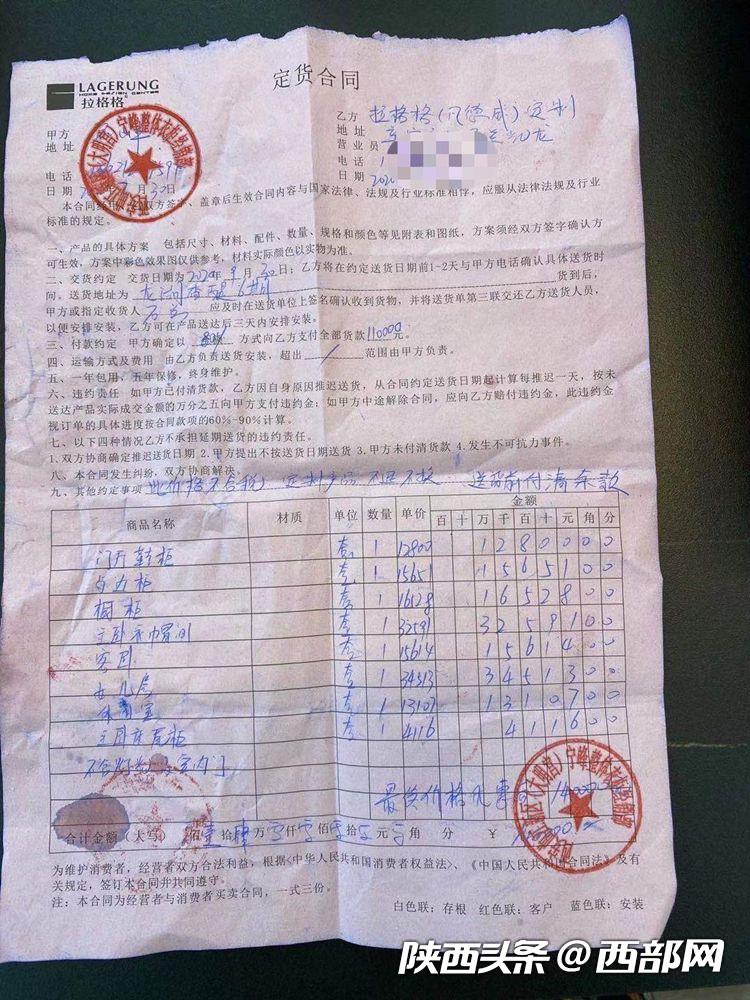 LAGERUNG
HOME DESIGN CENTER
拉格格
定货合同
甲方
地址
电话
日期
乙方 拉格格(凤德威)定制
地址
营业员
电话 1
日期 202
本合同经 双方签字、盖章后生效合同内容与国家法律、法规及行业标准相悖,应服从法律法规及行业
标准的规定。
一、产品的具体方案 包括尺寸、材料、配件、数量、规格和颜色等见附表和图纸,方案须经双方签字确认方
可生效,方案中彩色效果图仅供参考,材料实际颜色以实物为准。
二、交货约定 交货日期为2020年9月30日;乙方将在约定送货日期前1-2天与甲方电话确认具体送货时
间。送货地址为 货到后,
甲方或指定收货人 应及时在送货单位上签名确认收到货物,并将送货单第三联交还乙方送货人员,
以便安排安装,乙方可在产品送达后三天内安排安装。
三、付款约定 甲方确定以 方式向乙方支付全部货款110000元。
四、运输方式及费用 由乙方负责送货安装,超出 / 范围由甲方负责。
五、一年包用,五年保修,终身维护。
六、违约责任 如甲方已付清货款,乙方因自身原因推迟送货,从合同约定送货日期起计算每推迟一天,按未
送达产品实际成交金额的万分之五向甲方支付违约金;如甲方中途解除合同,应向乙方赔付违约金,此违约金
视订单的具体进度按合同款项的60%-90%计算。
七、以下四种情况乙方不承担延期送货的违约责任。
1.双方协商确定推迟送货日期 2.甲方提出不按送货日期送货 3.甲方未付清货款 4.发生不可抗力事件。
八、本合同发生纠纷,双方协商解决。
九、其他约定事项 此价格不含税,定制产品不退不换 送货前付清余款
商品名称 材质 单位 数量 单价 金额
百 十 万 千 百 十 元 角 分
门厅鞋柜 套 1 12800 1 2 8 0 0 0 0
套 1 15651 1 5 6 5 1 0 0
橱柜 套 1 16528 1 6 5 2 8 0 0
主卧衣帽间 套 1 32591 3 2 5 9 1 0 0
客卧 套 1 15614 1 5 6 1 4 0 0
女儿房 套 1 34513 3 4 5 1 3 0 0
套 1 13107 1 3 1 0 7 0 0
套 1 4116 4 1 1 6 0 0
最终价格
合计金额(大写) 佰 壹 拾 肆 万 零 仟 零 佰 零 拾 零 元 零 角 分 ￥
为维护消费者,经营者双方合法利益,根据<中华人民共和国消费者权益法>、《中国人民共和国合同法》及有
关规定,签订本合同并共同遵守。
注:本合同为经营者与消费者买卖合同,一式三份。
白色联:存根 红色联:客户 蓝色联:安装
陕西头条@西部网